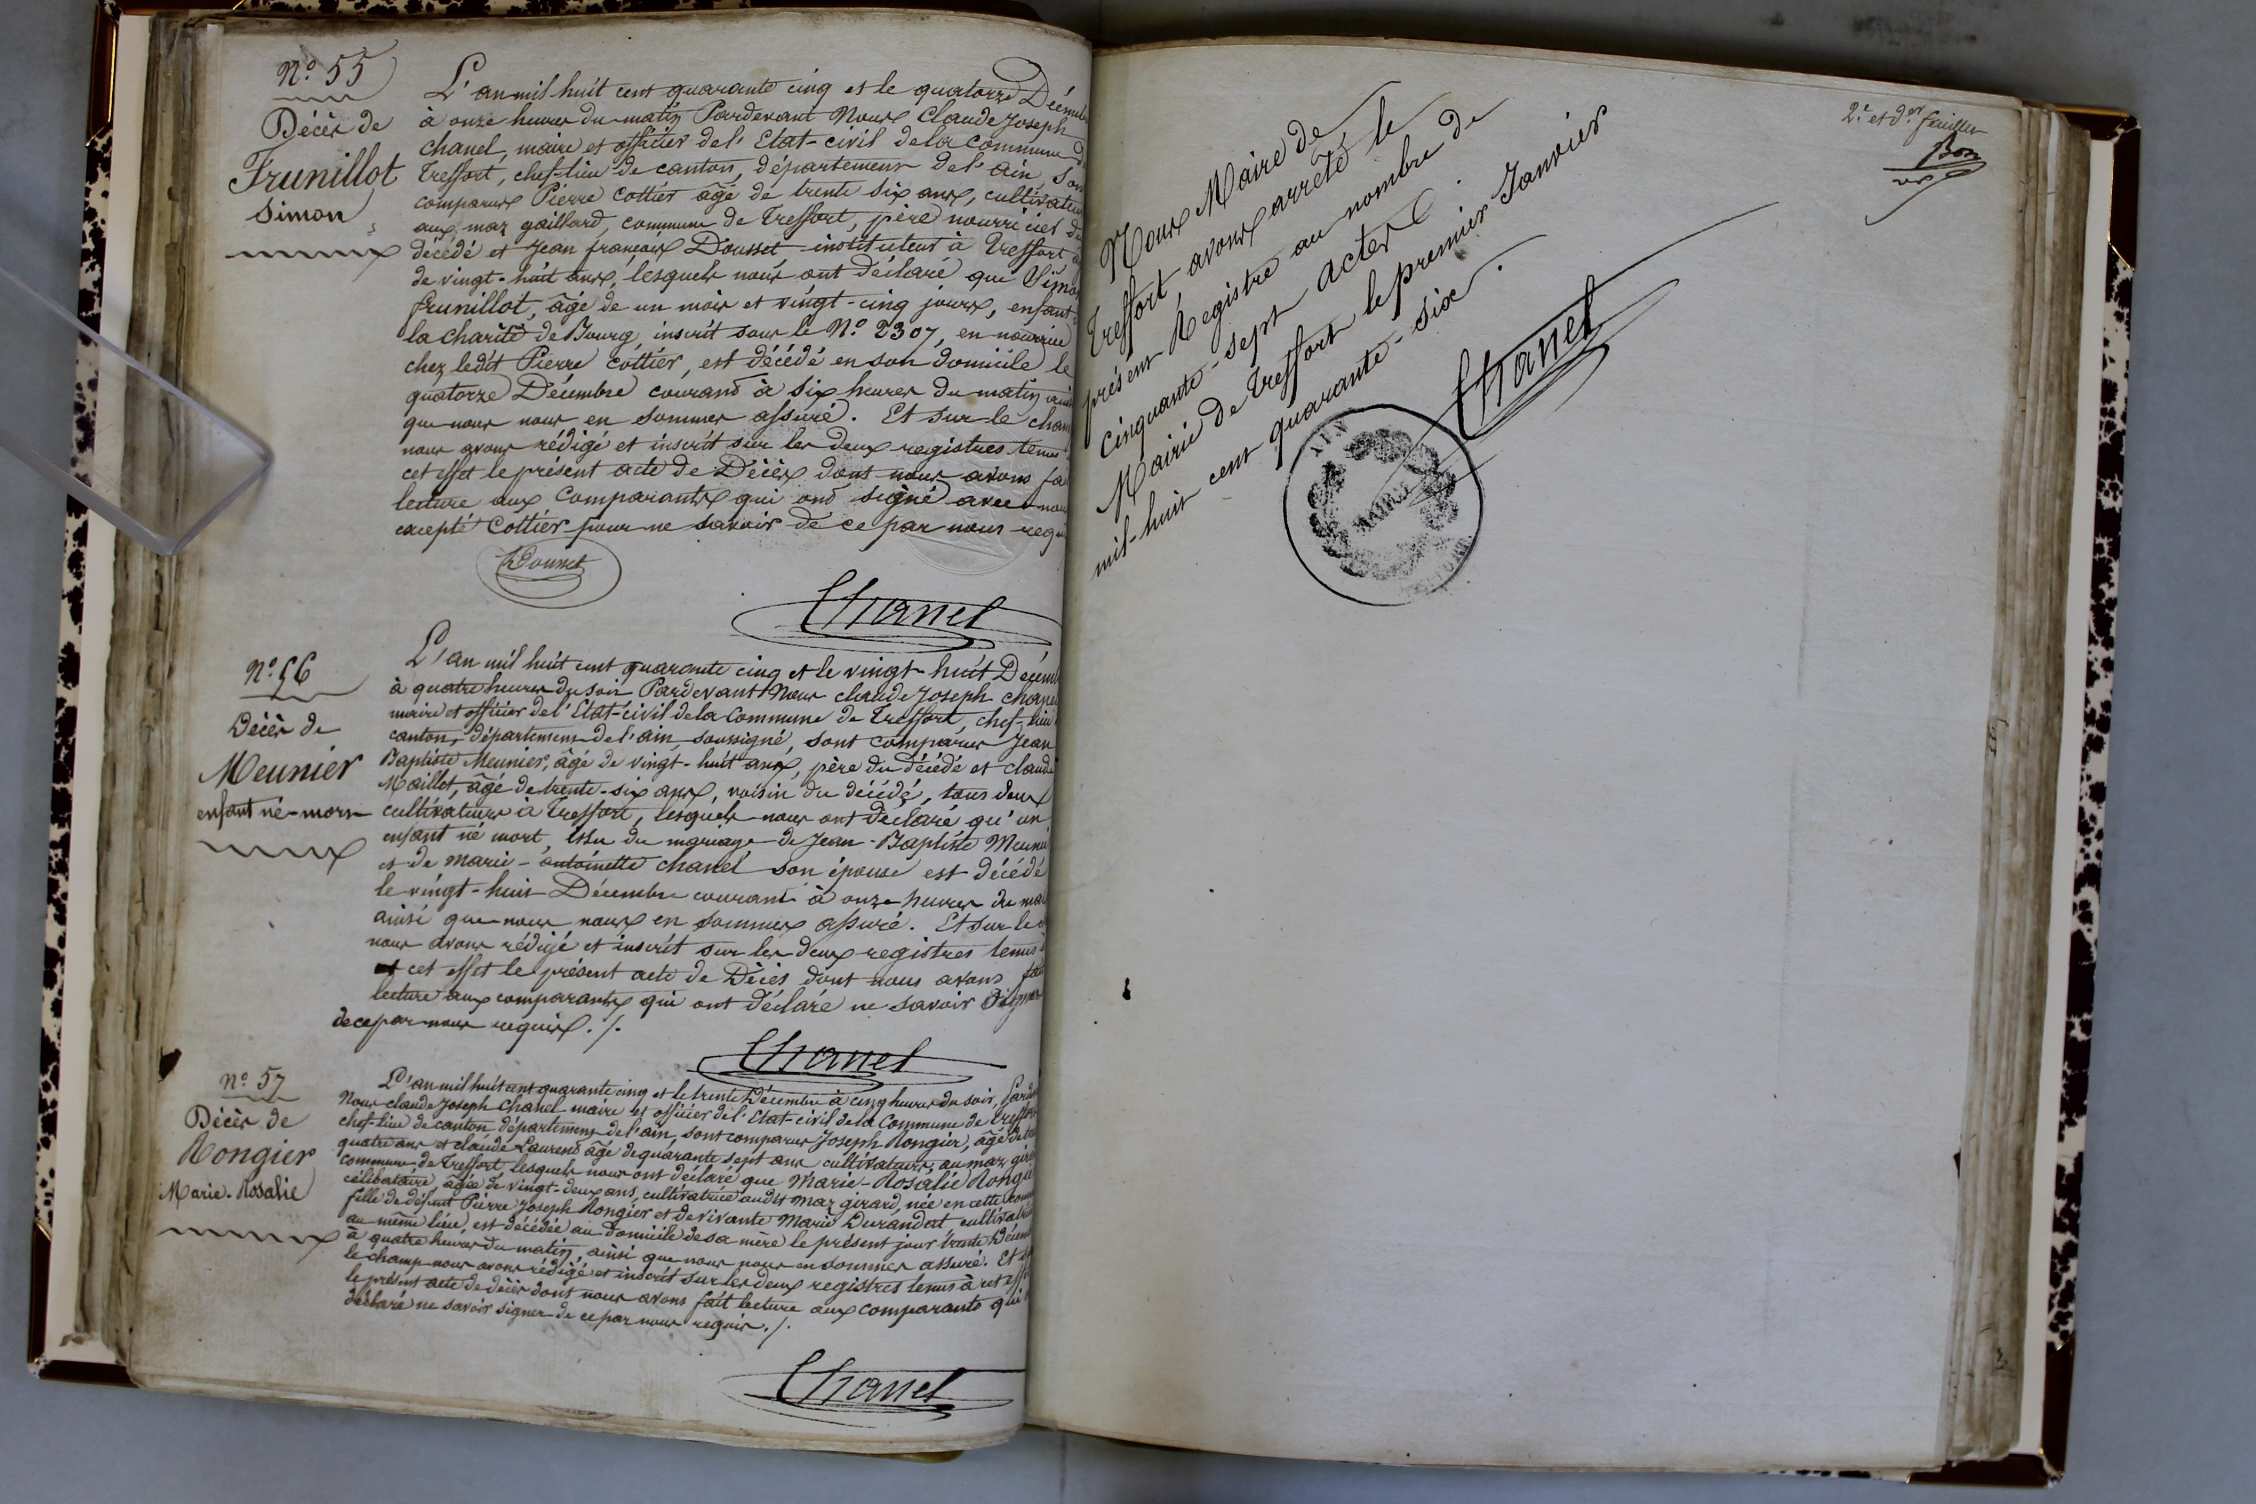 N.° 55
Décès de
Frunillot
Simon
L'an mil huit cent quarante cinq et le quatorze Décemb
à onze heures du matin Pardevant Nous Claude Joseph
chanel, maire et officier de l'Etat-civil de la Commune d
Treffort, chef-lieu de canton, département de l'ain, son
comparus Pierre Cottier âgé de trente six ans, cultivateu
aux maz gaillard, commune de Treffort, père nourricier d
décédé et Jean françois Dousset instituteur à Treffort
de vingt-huit ans, lesquels nous ont déclaré que Simo
frunillot, âgé de un mois et vingt-cinq jours, enfant
la charité de Bourg, inscrit sous le N.° 2307, en nourrice
chez ledit Pierre cottier, est décédé en son domicile le
quatorze Décembre courant à six heures du matin ain
que nous nous en sommes assuré. Et sur le cham
nous avons rédigé et inscrit sur les deux registres tenus
cet effet le présent acte de Décès dont nous avons fa
lecture aux Comparants qui ont signé avec nou
excepté Cottier pour ne savoir de ce par nous requ
Dousset
Chanel
N.° 56
Décès de
Meunier
enfant né-mort
L'an mil huit cent quarante cinq et le vingt-huit Décem
à quatre heures du soir Pardevant Nous claude Joseph chane
maire et officier de l'Etat-civil de la Commune de Treffort, chef-lieu
canton, département de l'ain, soussigné, sont comparus Jean
Baptiste Meunier, âgé de vingt-huit ans, père du décédé et claude
Maillet, âgé de trente-six ans, voisin du décédé, tous deux
cultivateurs à Treffort, lesquels nous ont déclaré qu'un
enfant né mort, issu du mariage de Jean-Baptiste Meuni
et de marie-antoinette chanel son épouse est décédé
le vingt-huit Décembre courant à onze heures du ma
ainsi que nous nous en sommes assuré. Et sur le
nous avons rédigé et inscrit sur les deux registres tenus
cet effet le présent acte de Décès dont nous avons fai
lecture aux comparants qui ont déclaré ne savoir signer
de ce par nous requis./.
Chanel
N.° 57
Décès de
Rongier
Marie-Rosalie
L'an mil huit cent quarante cinq et le trente Décembre à cinq heures du soir, Pard
Nous claude Joseph Chanel maire et officier de l'Etat-civil de la Commune de Treffort
chef-lieu de canton département de l'ain, sont comparus Joseph Rongier, âgé de
quatre ans et claude Laurent âgé de quarante sept ans cultivateurs, au maz gir
commune de Treffort lesquels nous ont déclaré que Marie-Rosalie Rongie
célibataire, âgée de vingt-deux ans, cultivatrice audit maz girard, née en cette comm
fille de défunt Pierre Joseph Rongier et de vivante Marie Durandat, cultivatri
au même lieu, est décédée au domicile de sa mère le présent jour trente Décem
à quatre heures du matin, ainsi que nous nous en sommes assuré. Et
le champ nous avons rédigé et inscrit sur les deux registres tenus à cet eff
le présent acte de décès dont nous avons fait lecture aux comparants qui
déclaré ne savoir signer de ce par nous requis./.
Chanel
2.e et d.er feuillet
Nous Maire de
Treffort, avons arrêté le
présent Registre au nombre de
cinquante-sept actes.
Mairie de Treffort le premier Janvier
mil-huit cent quarante-six.
Chanel
AIN
MAIRIE